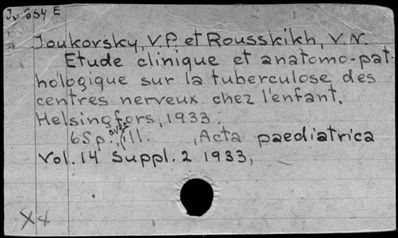 J. 654 E
Joukovsky, V.P. et Rousskikh, V.N.
Etude clinique et anatomo-pat-
hologique sur la tuberculose des
centres nerveux chez l'enfant.
Helsingfors, 1933.
65p. avec ill. , Acta paediatrica
Vol. 14 Suppl. 2 1933,
X4